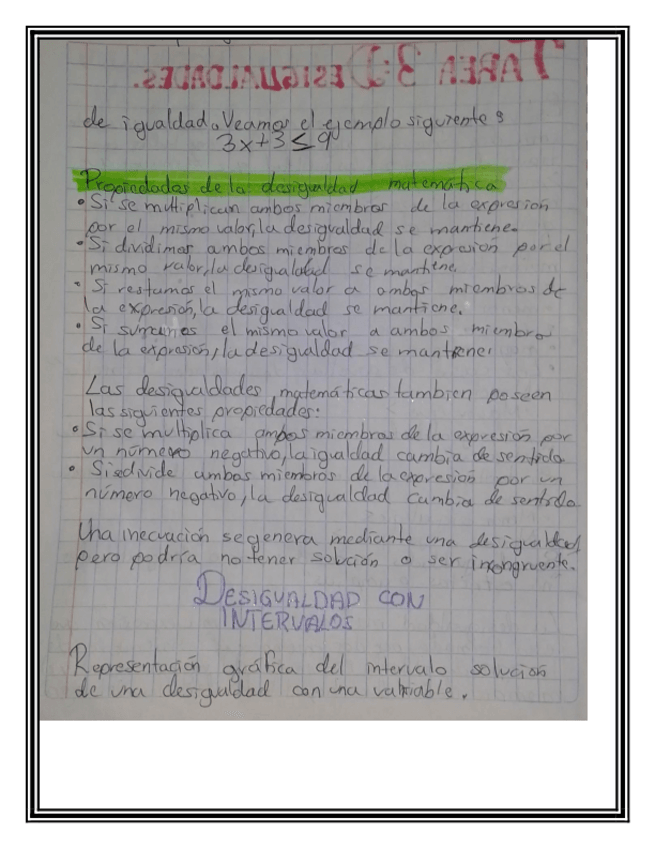 TAREA 3: DESIGUALDADES.
de igualdad. Veamos el ejemplo siguiente:
3x+3≤9
Propiedades de la desigualdad matemática
• Si se multiplican ambos miembros de la expresión
por el mismo valor, la desigualdad se mantiene.
• Si dividimos ambos miembros de la expresión por el
mismo valor, la desigualdad se mantiene.
• Si restamos el mismo valor a ambos miembros de
la expresión, la desigualdad se mantiene.
• Si sumamos el mismo valor a ambos miembros
de la expresión, la desigualdad se mantiene.
Las desigualdades matemáticas tambien poseen
las siguientes propiedades:
• Si se multiplica ambos miembros de la expresión por
un número negativo, la igualdad cambia de sentido
• Si se divide ambos miembros de la expresión por un
número negativo, la desigualdad cambia de sentido
Una inecuación se genera mediante una desigualdad,
pero podría no tener solución o ser incongruente.
DESIGUALDAD CON
INTERVALOS
Representación gráfica del intervalo solución
de una desigualdad con una variable.